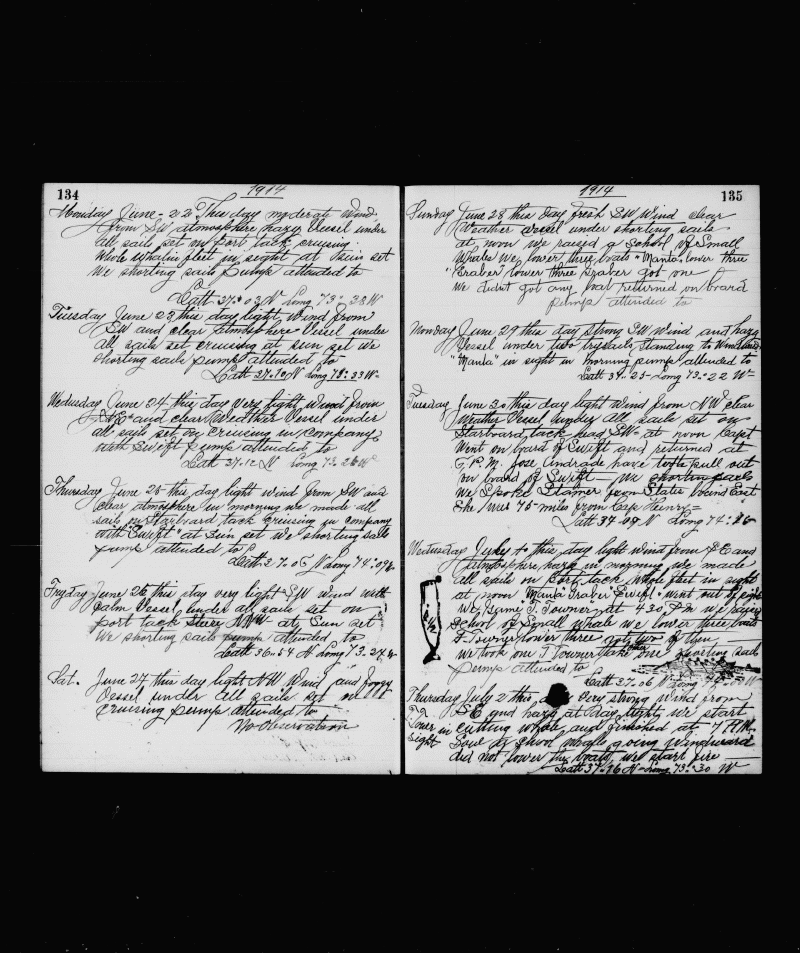 134
1914
Monday June 22 This day moderate Wind
from SW atmosphere hazy Vessel under
all sails set on Port tack cruising
Whole whalin fleet in sight at Ssun set
We shorting sails Pump attended to
Latt 37.03 N Long 73:28 W
Tuesday June 23 this day light Wind from
SW and clear atmosphere Vessel under
all sails set cruising at sun set we
shorting sails pump attended to
Latt 37.10 N Long 73:33 W
Wedusday June 24 this day Very light Wind from
and clear Weather Vessel under
all sails set on cruising in company
with Swift Pump attended to
Latt 37.12 N Long 73 26 W
Thursday June 25 this day light Wind from SW and
clear atmosphere in morning we made all
sails on Starbrard tack cruising in company
with "Swift" at Sun set We shorting sails
pump attended to
Latt 37.05 N Long 74.09
Fryday June 26 this day very light SW wind with
palm Vessel under all sails set on
port tack Steer NNW at Sun set
We shorting sails pump attended to
Latt 36.54 N Long 73.24
Sat. June 27 this day light NW Wind and foggy
Vessel under all sails set on
cruising pump attended to
No Observation
1914
135
Sunday June 28 this Day fresh SW Wind clear
Weather Vessel under shorting sails
at noon we raised a School of Small
Whales We lower three boats "Manta" lower three
"Graber" lower three Graber got one
We didnt got any boat returned on board
pump attended to
Monday June 29 this day strong SW Wind and hazy
Vessel under two trysails standing to Windward
"Manta" in sight in morning pump attended to
Latt 37.25 Long 73.22 W
Tuesday June 30 this day light Wind from NW clear
Weather Vessel under all sails set on
Starboard tack head SW at noon Capt
Went on board of Swift and returned at
P.M. Jose Andrade have tooth pull out
on board of Swift We shorting sails
We Spoke Stamer from States bound East
She Was 75 miles from Cap Henry
Latt 37.09 N Long 74:26
Wedusday July 1 this day light Wind from SE and
Atmosphere hazy in morning we made
all sails on Port tack Whole fleet in sight
at noon "Manta" "Graber" "Swift" Went out of sight
We Game J. Towner at 430 P.M We raised
School of Small whale we lower three boats
J. Towner lower three got two of then
We took one J Towner take one
pump attended to
Latt 37.06 N Long W
Thursday July 2 this Very strong Wind from
SE and hazy at day light we start
in cutting whale and finished at 7 A.M.
Towner in sight
Saw School whale going Windward
did not lower the boats we start fire
Latt 37.26 N Long 73:30 W